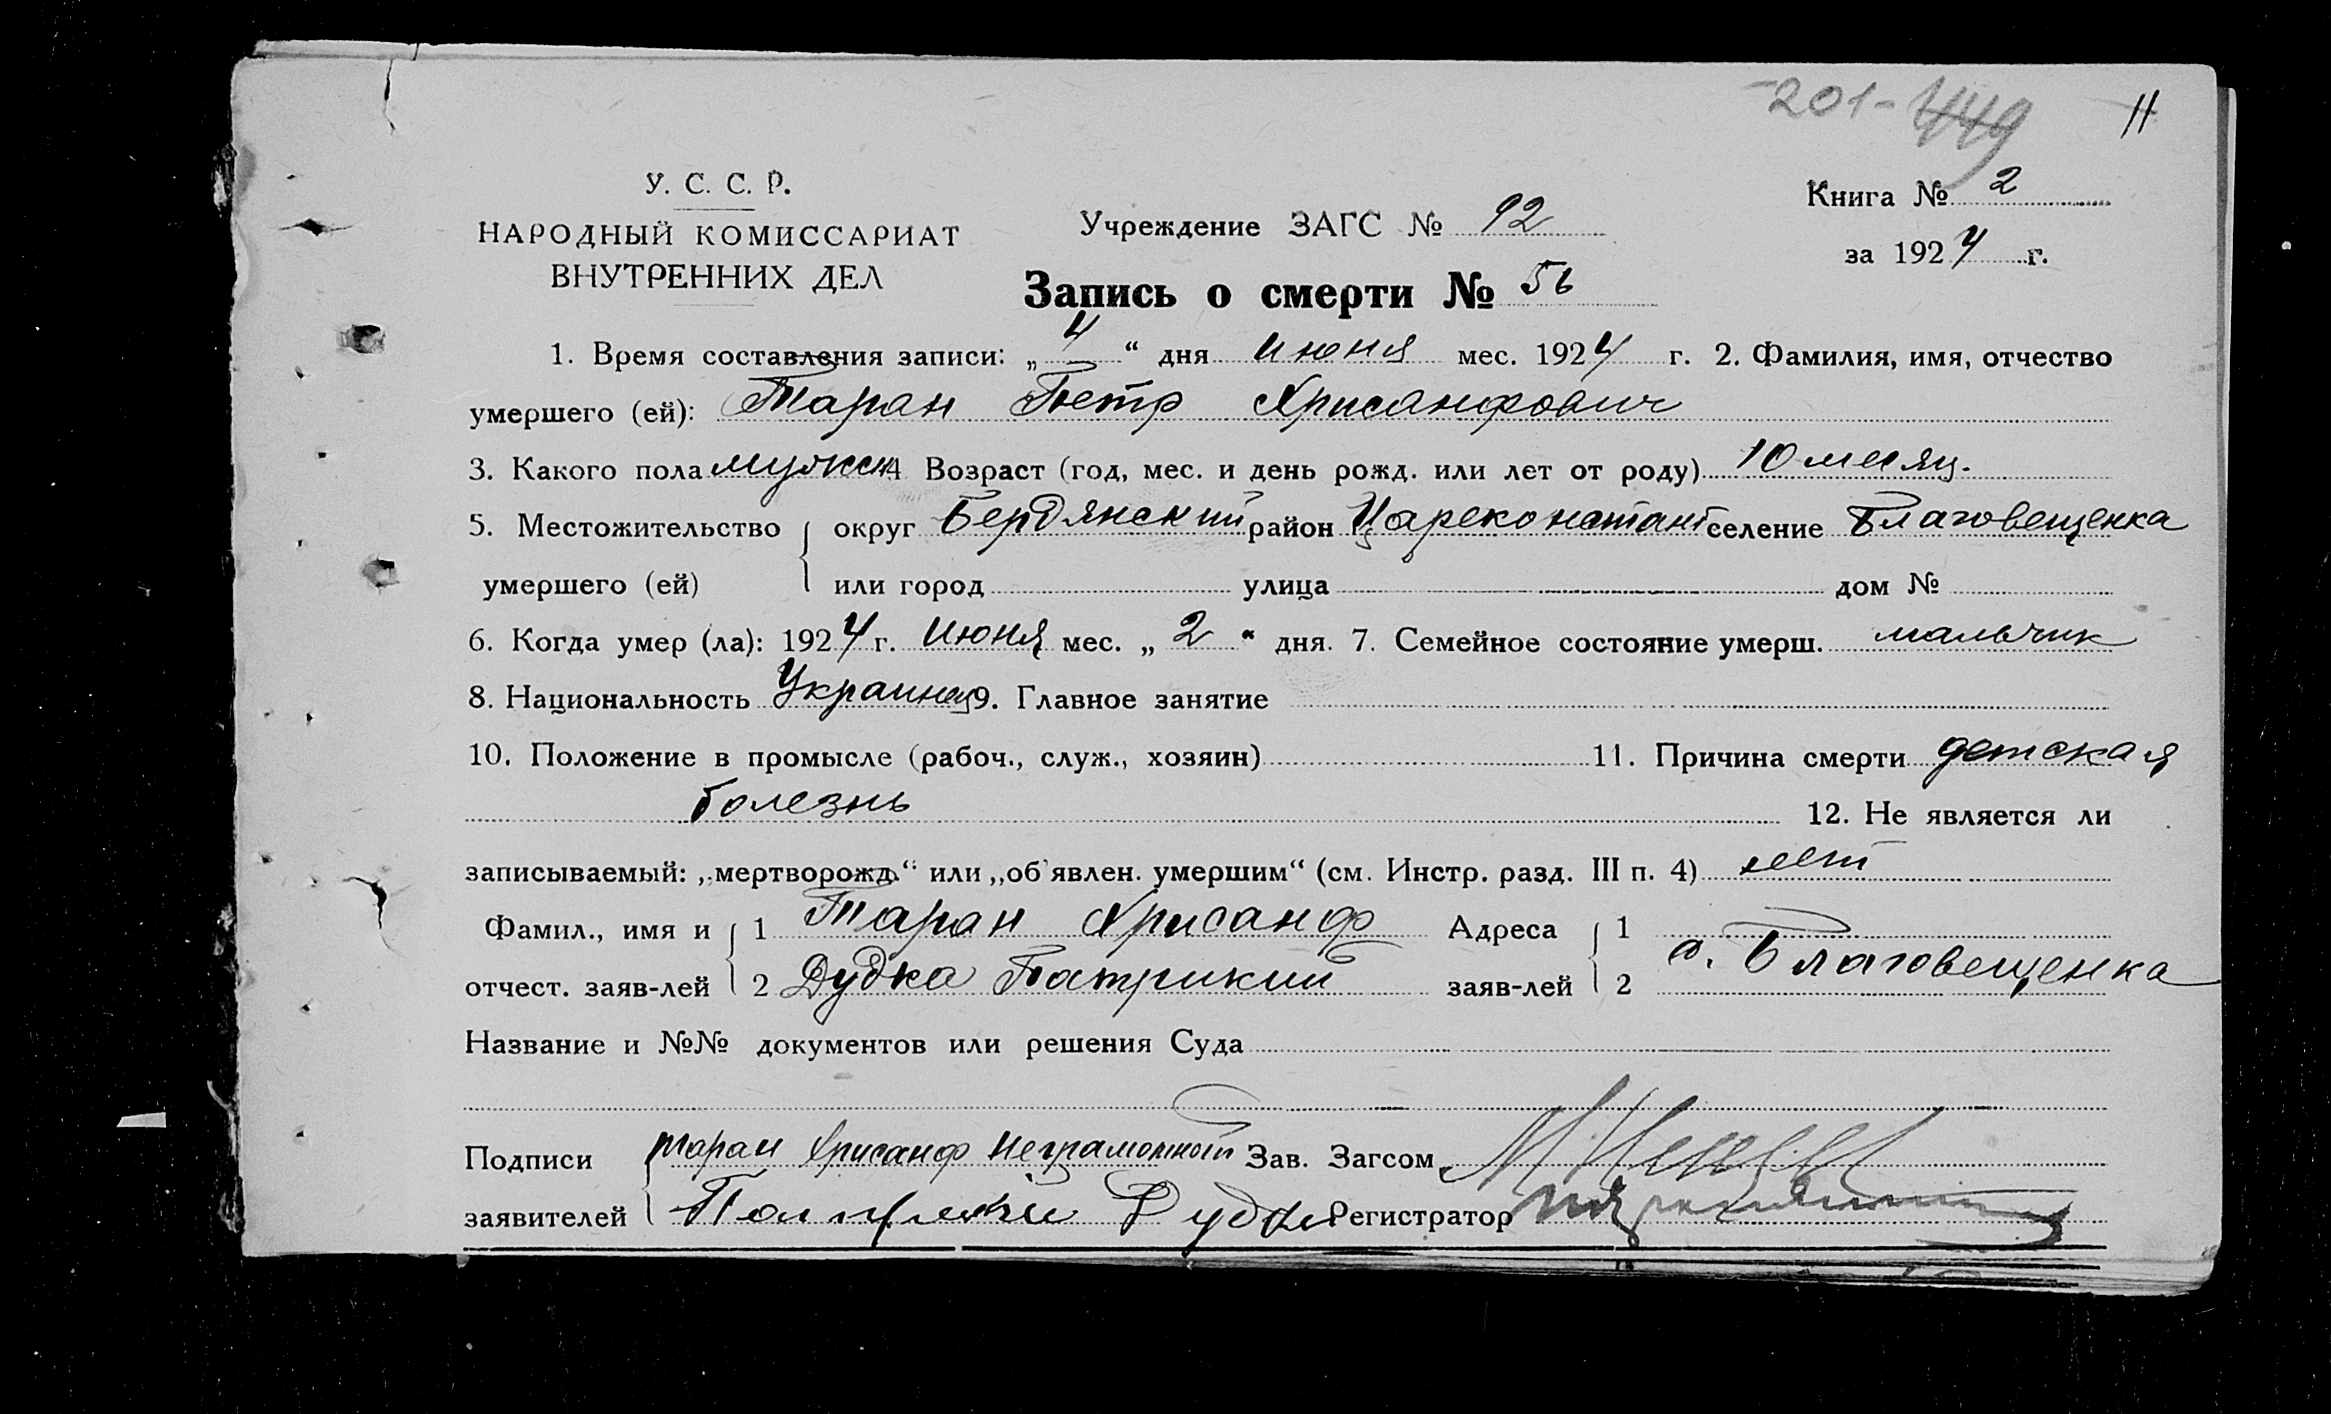 201-449
11
У. С. С. Р.
НАРОДНЫЙ КОМИССАРИАТ
ВНУТРЕННИХ ДЕЛ
Учреждение ЗАГС № 92
Книга № 2
за 1924 г.
Запись о смерти № 56
1. Время составления записи: „4“ дня июня мес. 1924 г. 2. Фамилия, имя, отчество
умершего (ей): Таран Петр Хрисанфович
3. Какого пола мужск 4 Возраст (год, мес. и день рожд. или лет от роду) 10 месяц.
5. Местожительство округ Бердянский район Цареконстант селение Благовещенка
умершего (ей) или город улица дом №
6. Когда умер (ла): 1924 г. июня мес. „2“ дня. 7. Семейное состояние умерш. мальчик
8. Национальность Украинец 9. Главное занятие
10. Положение в промысле (рабоч., служ., хозяин) 11. Причина смерти детская
болезнь 12. Не является ли
записываемый: „мертворожд.“ или „об'явлен. умершим“ (см. Инстр. разд. III п. 4) нет
Фамил., имя и 1 Таран Хрисанф Адреса 1
отчест. заяв-лей 2 Дудка Патрикий заяв-лей 2 с. Благовещенка
Название и №№ документов или решения Суда
Подписи Таран Хрисанф неграмотный Зав. Загсом
заявителей Патрикий Дудка Регистратор